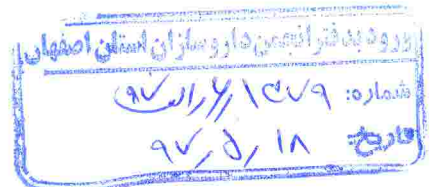 ورود بدفتر انجمن داروسازان استان اصفهان
شماره: ۹۷/الف/۲/۱۴۷۹
تاریخ: ۹۷/۵/۱۸